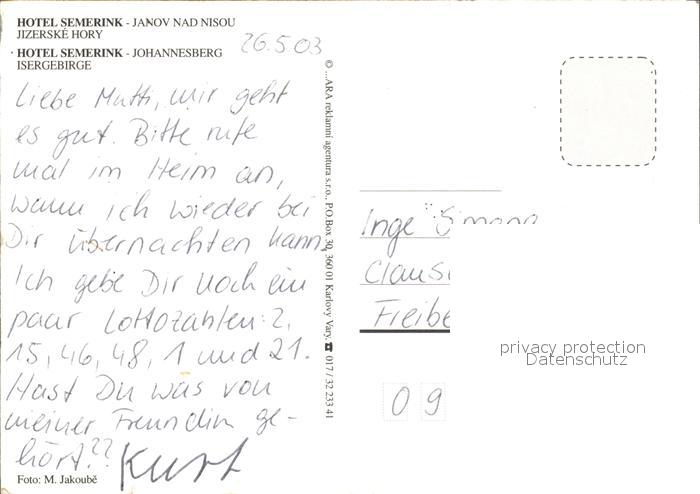 HOTEL SEMERINK - JANOV NAD NISOU
JIZERSKÉ HORY
HOTEL SEMERINK - JOHANNESBERG
ISERGEBIRGE
26.5.03
Liebe Mutti, mir geht
es gut. Bitte rufe
mal im Heim an,
wann ich wieder bei
Dir übernachten kann.
Ich gebe Dir noch ein
paar Lottozahlen: 2,
15, 46, 48, 1 und 21.
Hast Du was von
meiner Freundin ge-
hört??
Kurt
Foto: M. Jakoubě
© ...ARA reklamní agentura s.r.o., PO Box 30, 360 01 Karlovy Vary, ☎ 017 / 32 233 41
Inge
Claus
Freibe
09
privacy protection
Datenschutz